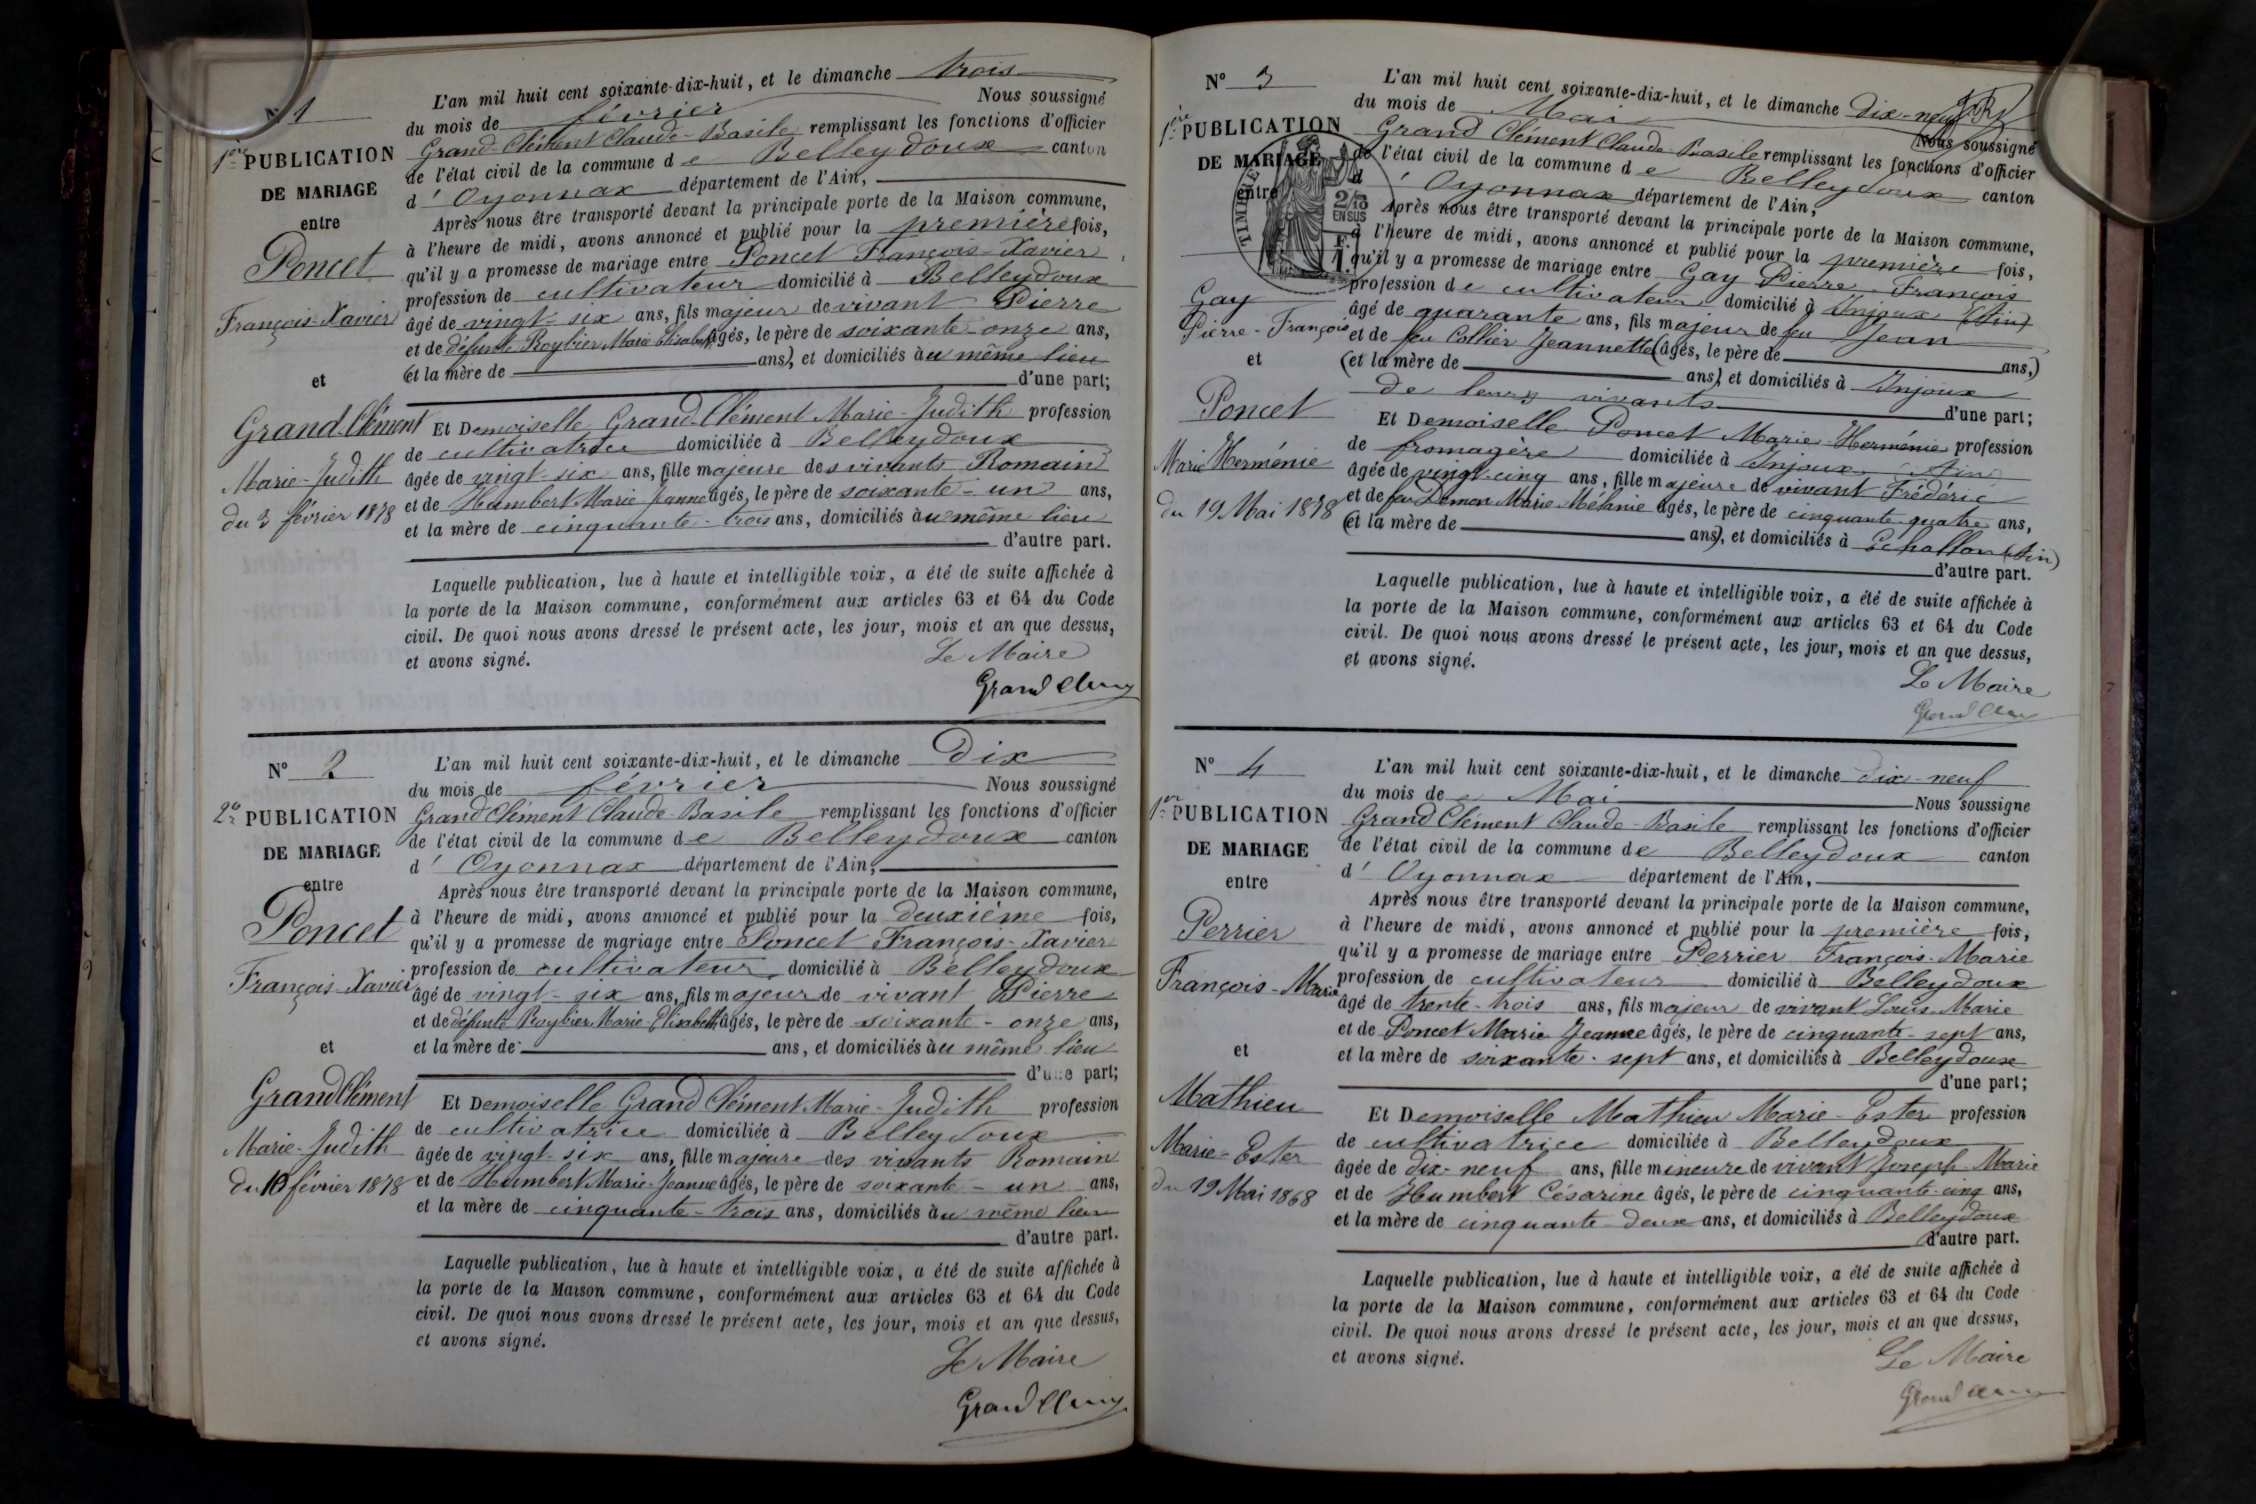 N° 1
1ère PUBLICATION
DE MARIAGE
entre
Poncet
François-Xavier
et
Grand-Clément
Marie-Judith
du 3 février 1878
L'an mil huit cent soixante-dix-huit, et le dimanche trois
du mois de février Nous soussigné
Grand-Clément Claude-Basile remplissant les fonctions d'officier
de l'état civil de la commune de Belleydoux canton
d'Oyonnax département de l'Ain,
Après nous être transporté devant la principale porte de la Maison commune,
à l'heure de midi, avons annoncé et publié pour la première fois,
qu'il y a promesse de mariage entre Poncet François-Xavier
profession de cultivateur domicilié à Belleydoux
âgé de vingt-six ans, fils majeur de vivant Pierre
et de défunte Roybier Marie Elisabeth âgés, le père de soixante-onze ans,
(et la mère de ans), et domiciliés au même lieu
d'une part;
Et Demoiselle Grand-Clément Marie-Judith profession
de cultivatrice domiciliée à Belleydoux
âgée de vingt-six ans, fille majeure des vivants Romain
et de Humbert Marie Jeanne âgés, le père de soixante-un ans,
et la mère de cinquante-trois ans, domiciliés au même lieu
d'autre part.
Laquelle publication, lue à haute et intelligible voix, a été de suite affichée à
la porte de la Maison commune, conformément aux articles 63 et 64 du Code
civil. De quoi nous avons dressé le présent acte, les jour, mois et an que dessus,
et avons signé.
Le Maire
N° 2
2e PUBLICATION
DE MARIAGE
entre
Poncet
François-Xavier
et
Grand Clément
Marie-Judith
du 10 février 1878
L'an mil huit cent soixante-dix-huit, et le dimanche Dix
du mois de février Nous soussigné
Grand Clément Claude-Basile remplissant les fonctions d'officier
de l'état civil de la commune de Belleydoux canton
d'Oyonnax département de l'Ain,
Après nous être transporté devant la principale porte de la Maison commune,
à l'heure de midi, avons annoncé et publié pour la deuxième fois,
qu'il y a promesse de mariage entre Poncet François-Xavier
profession de cultivateur domicilié à Belleydoux
âgé de vingt-six ans, fils majeur de vivant Pierre
et de défunte Roybier Marie Elisabeth âgés, le père de soixante-onze ans,
et la mère de ans, et domiciliés au même lieu
d'une part;
Et Demoiselle Grand Clément Marie-Judith profession
de cultivatrice domiciliée à Belleydoux
âgée de vingt-six ans, fille majeure des vivants Romain
et de Humbert Marie-Jeanne âgés, le père de soixante-un ans,
et la mère de cinquante-trois ans, domiciliés au même lieu
d'autre part.
Laquelle publication, lue à haute et intelligible voix, a été de suite affichée à
la porte de la Maison commune, conformément aux articles 63 et 64 du Code
civil. De quoi nous avons dressé le présent acte, les jour, mois et an que dessus,
et avons signé.
Le Maire
N° 3
1ère PUBLICATION
DE MARIAGE
entre
TIMBRE
2/10
EN SUS
Gay
Pierre-François
et
Poncet
Marie Herménie
du 19 Mai 1878
L'an mil huit cent soixante-dix-huit, et le dimanche Dix-neuf
du mois de Mai Nous soussigné
Grand Clément Claude-Basile remplissant les fonctions d'officier
de l'état civil de la commune de Belleydoux canton
d'Oyonnax département de l'Ain,
Après nous être transporté devant la principale porte de la Maison commune,
à l'heure de midi, avons annoncé et publié pour la première fois,
qu'il y a promesse de mariage entre Gay Pierre-François
profession de cultivateur domicilié à Injoux (Ain)
âgé de quarante ans, fils majeur de feu Jean
et de feu Collier Jeannette (âgés, le père de ans,)
(et la mère de ans) et domiciliés à Injoux
de leurs vivants d'une part;
Et Demoiselle Poncet Marie-Herménie profession
de fromagère domiciliée à Injoux Ain
âgée de vingt-cinq ans, fille majeure de vivant Frédéric
et de feu Démon Marie Mélanie âgés, le père de cinquante-quatre ans,
(et la mère de ans), et domiciliés à Echallon (Ain)
d'autre part.
Laquelle publication, lue à haute et intelligible voix, a été de suite affichée à
la porte de la Maison commune, conformément aux articles 63 et 64 du Code
civil. De quoi nous avons dressé le présent acte, les jour, mois et an que dessus,
et avons signé.
Le Maire
N° 4
1ère PUBLICATION
DE MARIAGE
entre
Perrier
François-Marie
et
Mathieu
Marie-Ester
du 19 Mai 1868
L'an mil huit cent soixante-dix-huit, et le dimanche dix-neuf
du mois de Mai Nous soussigné
Grand Clément Claude-Basile remplissant les fonctions d'officier
de l'état civil de la commune de Belleydoux canton
d'Oyonnax département de l'Ain,
Après nous être transporté devant la principale porte de la Maison commune,
à l'heure de midi, avons annoncé et publié pour la première fois,
qu'il y a promesse de mariage entre Perrier François-Marie
profession de cultivateur domicilié à Belleydoux
âgé de trente-trois ans, fils majeur de vivant Louis-Marie
et de Poncet Marie Jeanne âgés, le père de cinquante-sept ans,
et la mère de soixante-sept ans, et domiciliés à Belleydoux
d'une part;
Et Demoiselle Mathieu Marie-Ester profession
de cultivatrice domiciliée à Belleydoux
âgée de dix-neuf ans, fille mineure de vivant Joseph-Marie
et de Humbert Césarine âgés, le père de cinquante-cinq ans,
et la mère de cinquante-deux ans, et domiciliés à Belleydoux
d'autre part.
Laquelle publication, lue à haute et intelligible voix, a été de suite affichée à
la porte de la Maison commune, conformément aux articles 63 et 64 du Code
civil. De quoi nous avons dressé le présent acte, les jour, mois et an que dessus,
et avons signé.
Le Maire